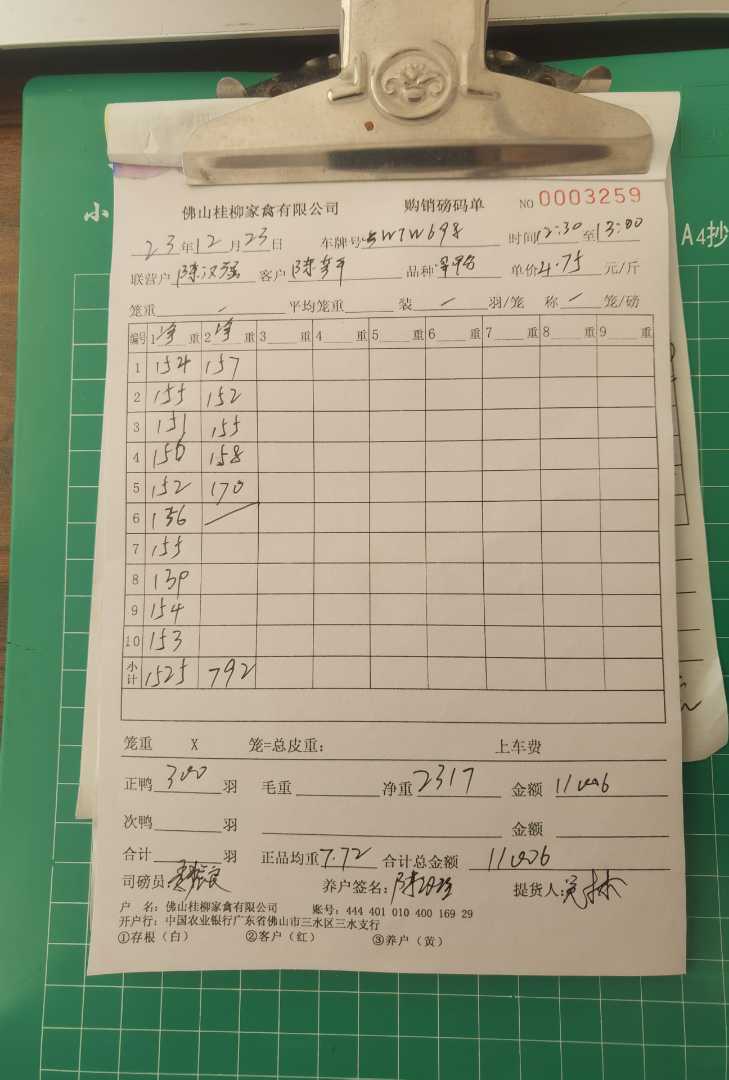 小
A4抄
佛山桂柳家禽有限公司 购销磅码单 NO 0003259
23年12月23日 车牌号 W7W698 时间12:30至13:00
联营户 陈汉强 客户 陈 平 品种 单价4.75元/斤
笼重 — 平均笼重 装 — 羽/笼 称 — 笼/磅
编号 1净重 2净重 3 重 4 重 5 重 6 重 7 重 8 重 9 重
1 154 157
2 155 152
3 151 155
4 156 158
5 152 170
6 156 —
7 155
8 139
9 154
10 153
小计 1525 792
笼重 X 笼=总皮重: 上车费
正鸭 300 羽 毛重 净重 2317 金额 11006
次鸭 羽 金额
合计 羽 正品均重 7.72 合计总金额 11006
司磅员: 养户签名: 陈汉强 提货人:
户 名: 佛山桂柳家禽有限公司 账号: 444 401 010 400 169 29
开户行: 中国农业银行广东省佛山市三水区三水支行
①存根（白） ②客户（红） ③养户（黄）